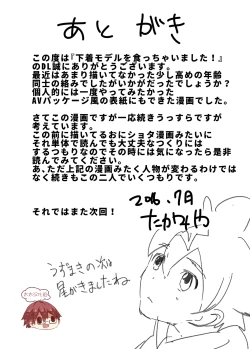 あとがき
この度は『下着モデルを食っちゃいました！』
のDL誠にありがとうございます。
最近はあまり描いてなかった少し高めの年齢
同士の絡みでしたがいかがだったでしょうか？
個人的には一度やってみたかった
AVパッケージ風の表紙にもできた漫画でした。
さてこの漫画ですが一応続きうっすらですが
考えています。
この前に描いてるおにショタ漫画みたいに
それ単体で読んでも大丈夫なつくりには
するつもりなのでその時には気になったら是非
読んでみてください。
あ、ただ上記の漫画みたく人物が変わるわけでは
なく続きもこの二人でいくつもりです。
それではまた次回！
2016.7月
うずまきの次は
星がきましたね